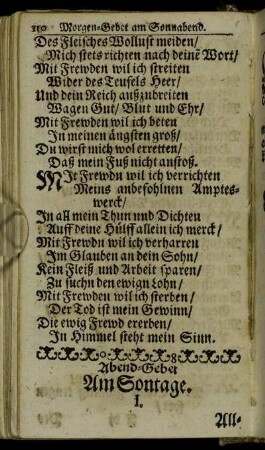 150 Morgen-Gebet am Sonnabend.
Des Fleisches Wollust meiden/
Mich stets richten nach deinē Wort/
Mit Frewden wil ich streiten
Wider des Teufels Heer/
Und dein Reich außzubreiten
Wagen Gut/ Blut und Ehr/
Mit Frewden wil ich beten
In meinen ängsten groß/
Du wirst mich wol erretten/
Daß mein Fuß nicht anstoß.
MIt Frewdn wil ich verrichten
Meins anbefohlnen Amptes-
werck/
In all mein Thun und Dichten
Auff deine Hülff allein ich merck/
Mit Frewdn wil ich verharren
Im Glauben an dein Sohn/
Kein Fleiß und Arbeit sparen/
Zu suchn den ewign Lohn/
Mit Frewden wil ich sterben/
Der Tod ist mein Gewinn/
Die ewig Frewd ererben/
In Himmel steht mein Sinn.
Abend-Gebet
Am Sontage.
I.
All-